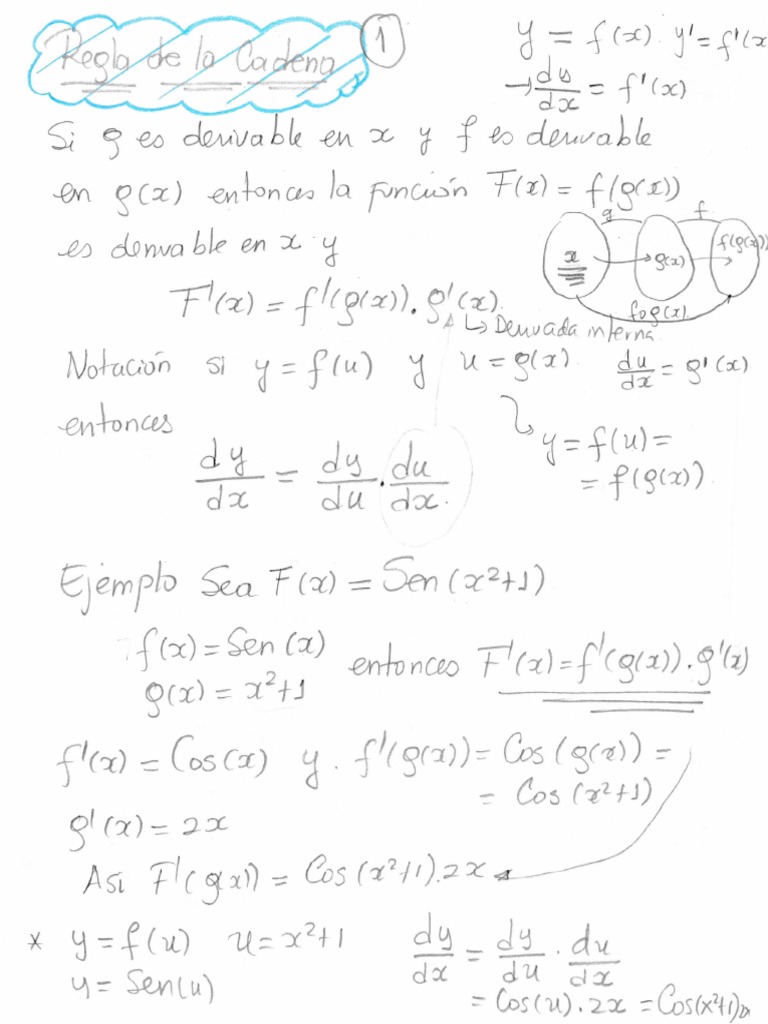 Regla de la Cadena 1
y = f(x) y' = f'(x
→ dy/dx = f'(x)
Si g es derivable en x y f es derivable
en g(x) entonces la función F(x) = f(g(x))
es derivable en x y
g f
x g(x) f(g(x))
fog(x)
F'(x) = f'(g(x)).g'(x)
↳ Derivada interna
Notación si y = f(u) y u = g(x) du/dx = g'(x)
entonces
y = f(u) =
= f(g(x))
dy/dx = dy/du . du/dx
Ejemplo Sea F(x) = Sen(x²+1)
f(x) = Sen(x)
g(x) = x²+1
entonces F'(x) = f'(g(x)).g'(x)
f'(x) = Cos(x) y . f'(g(x)) = Cos(g(x)) =
= Cos(x²+1)
g'(x) = 2x
Asi F'(g(x)) = Cos(x²+1).2x
* y = f(u) u = x²+1 dy/dx = dy/du . du/dx
y = Sen(u)
= Cos(u).2x = Cos(x²+1)2x